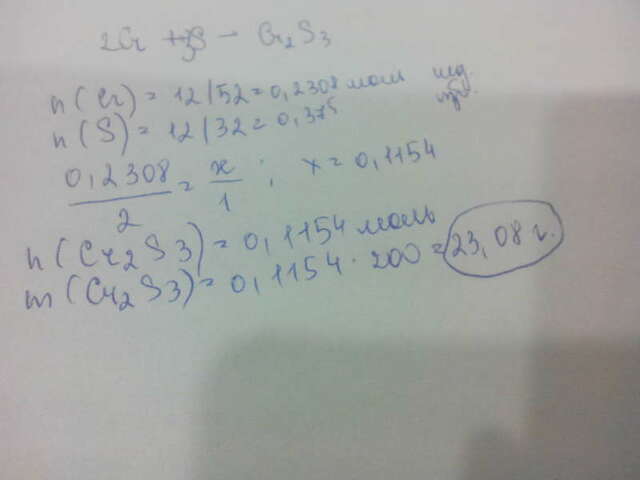 2Cr + 3S - Cr₂S₃
n(Cr) = 12/52 = 0,2308 моль нед.
n(S) = 12/32 = 0,375 изб.
0,2308/2 = x/1 ; x = 0,1154
n(Cr₂S3) = 0,1154 моль
m(Cr₂S3) = 0,1154 · 200 = 23,08 г.